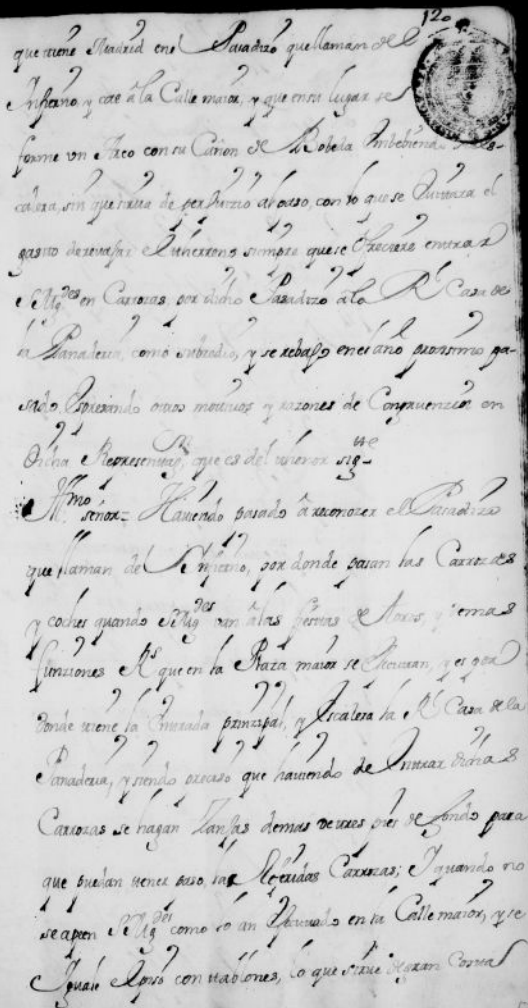 120
que tiene Madrid en el Pasadizo que llaman del
Infierno, y cae â la Calle maior, y que en su lugar se
forme un Arco con su Cañon de Bobeda
calera, sin que sirva de perjuizio al paso, con lo que se quitara el
gasto de revajar el terreno siempre que se ofreciere entrar
SMg.des en Carrozas por dicho Pasadizo â la R.l Casa de
la Panaderia, como subcedio, y se rebajo en el año proximo pa-
sado, Esperando otros motivos y razones de Congruenzia en
dicha Represent.on, que es del thenor sig.te
Ill.mo señor= Haviendo pasado â reconozer el Pasadizo
que llaman del Infierno, por donde pasan las Carrozas
y coches quando SMg.des van â las fiestas de Toros, y demas
funziones R.s que en la Plaza maior se Executan, y es por
donde tiene la Entrada prinzipal, y Escalera la R.l Casa de la
Panaderia, y siendo preciso que haviendo de Entrar dichas
Carrozas se hagan Zanjas de mas de tres pies de fondo para
que puedan tener paso, las Referidas Carrozas; Y quando no
se apen SMg.des como lo an Executado en la Calle maior, y se
Yguale el piso con tablones, lo que sirve de gran Costa